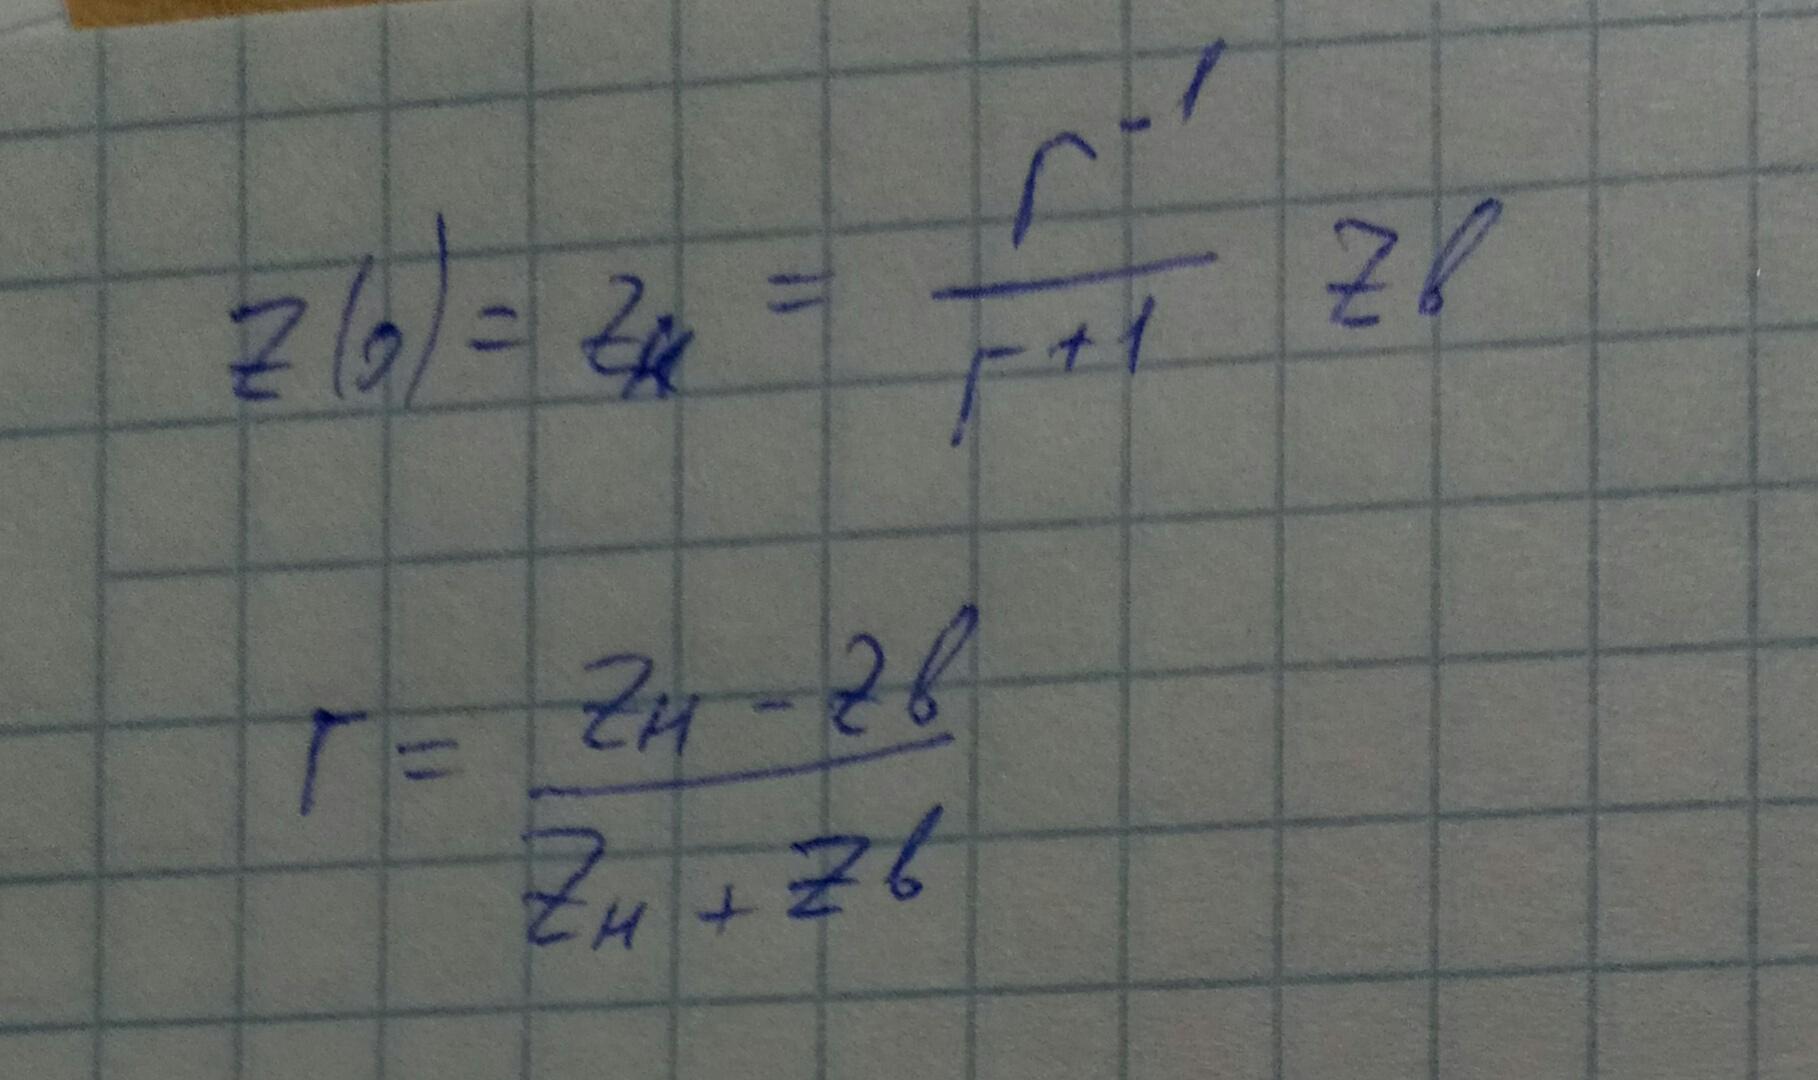 Z(0) = Zн = Г - 1 / Г + 1 Zв
Г = Zн - Zв / Zн + Zв